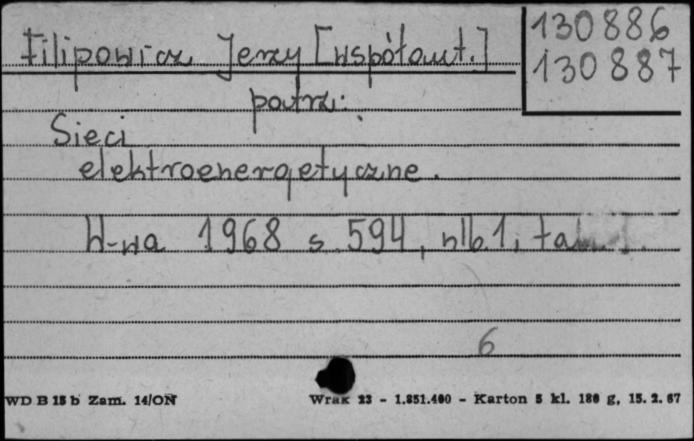 130886
Filipowicz Jerzy [współaut.]
130887
patrz:
Sieci
elektroenergetyczne.
W-wa 1968 s. 594, nlb 1,
6
WD B 15 b Zam. 14/ON Wrak 23 - 1.851.400 - Karton 5 kl. 180 g, 15. 2. 67